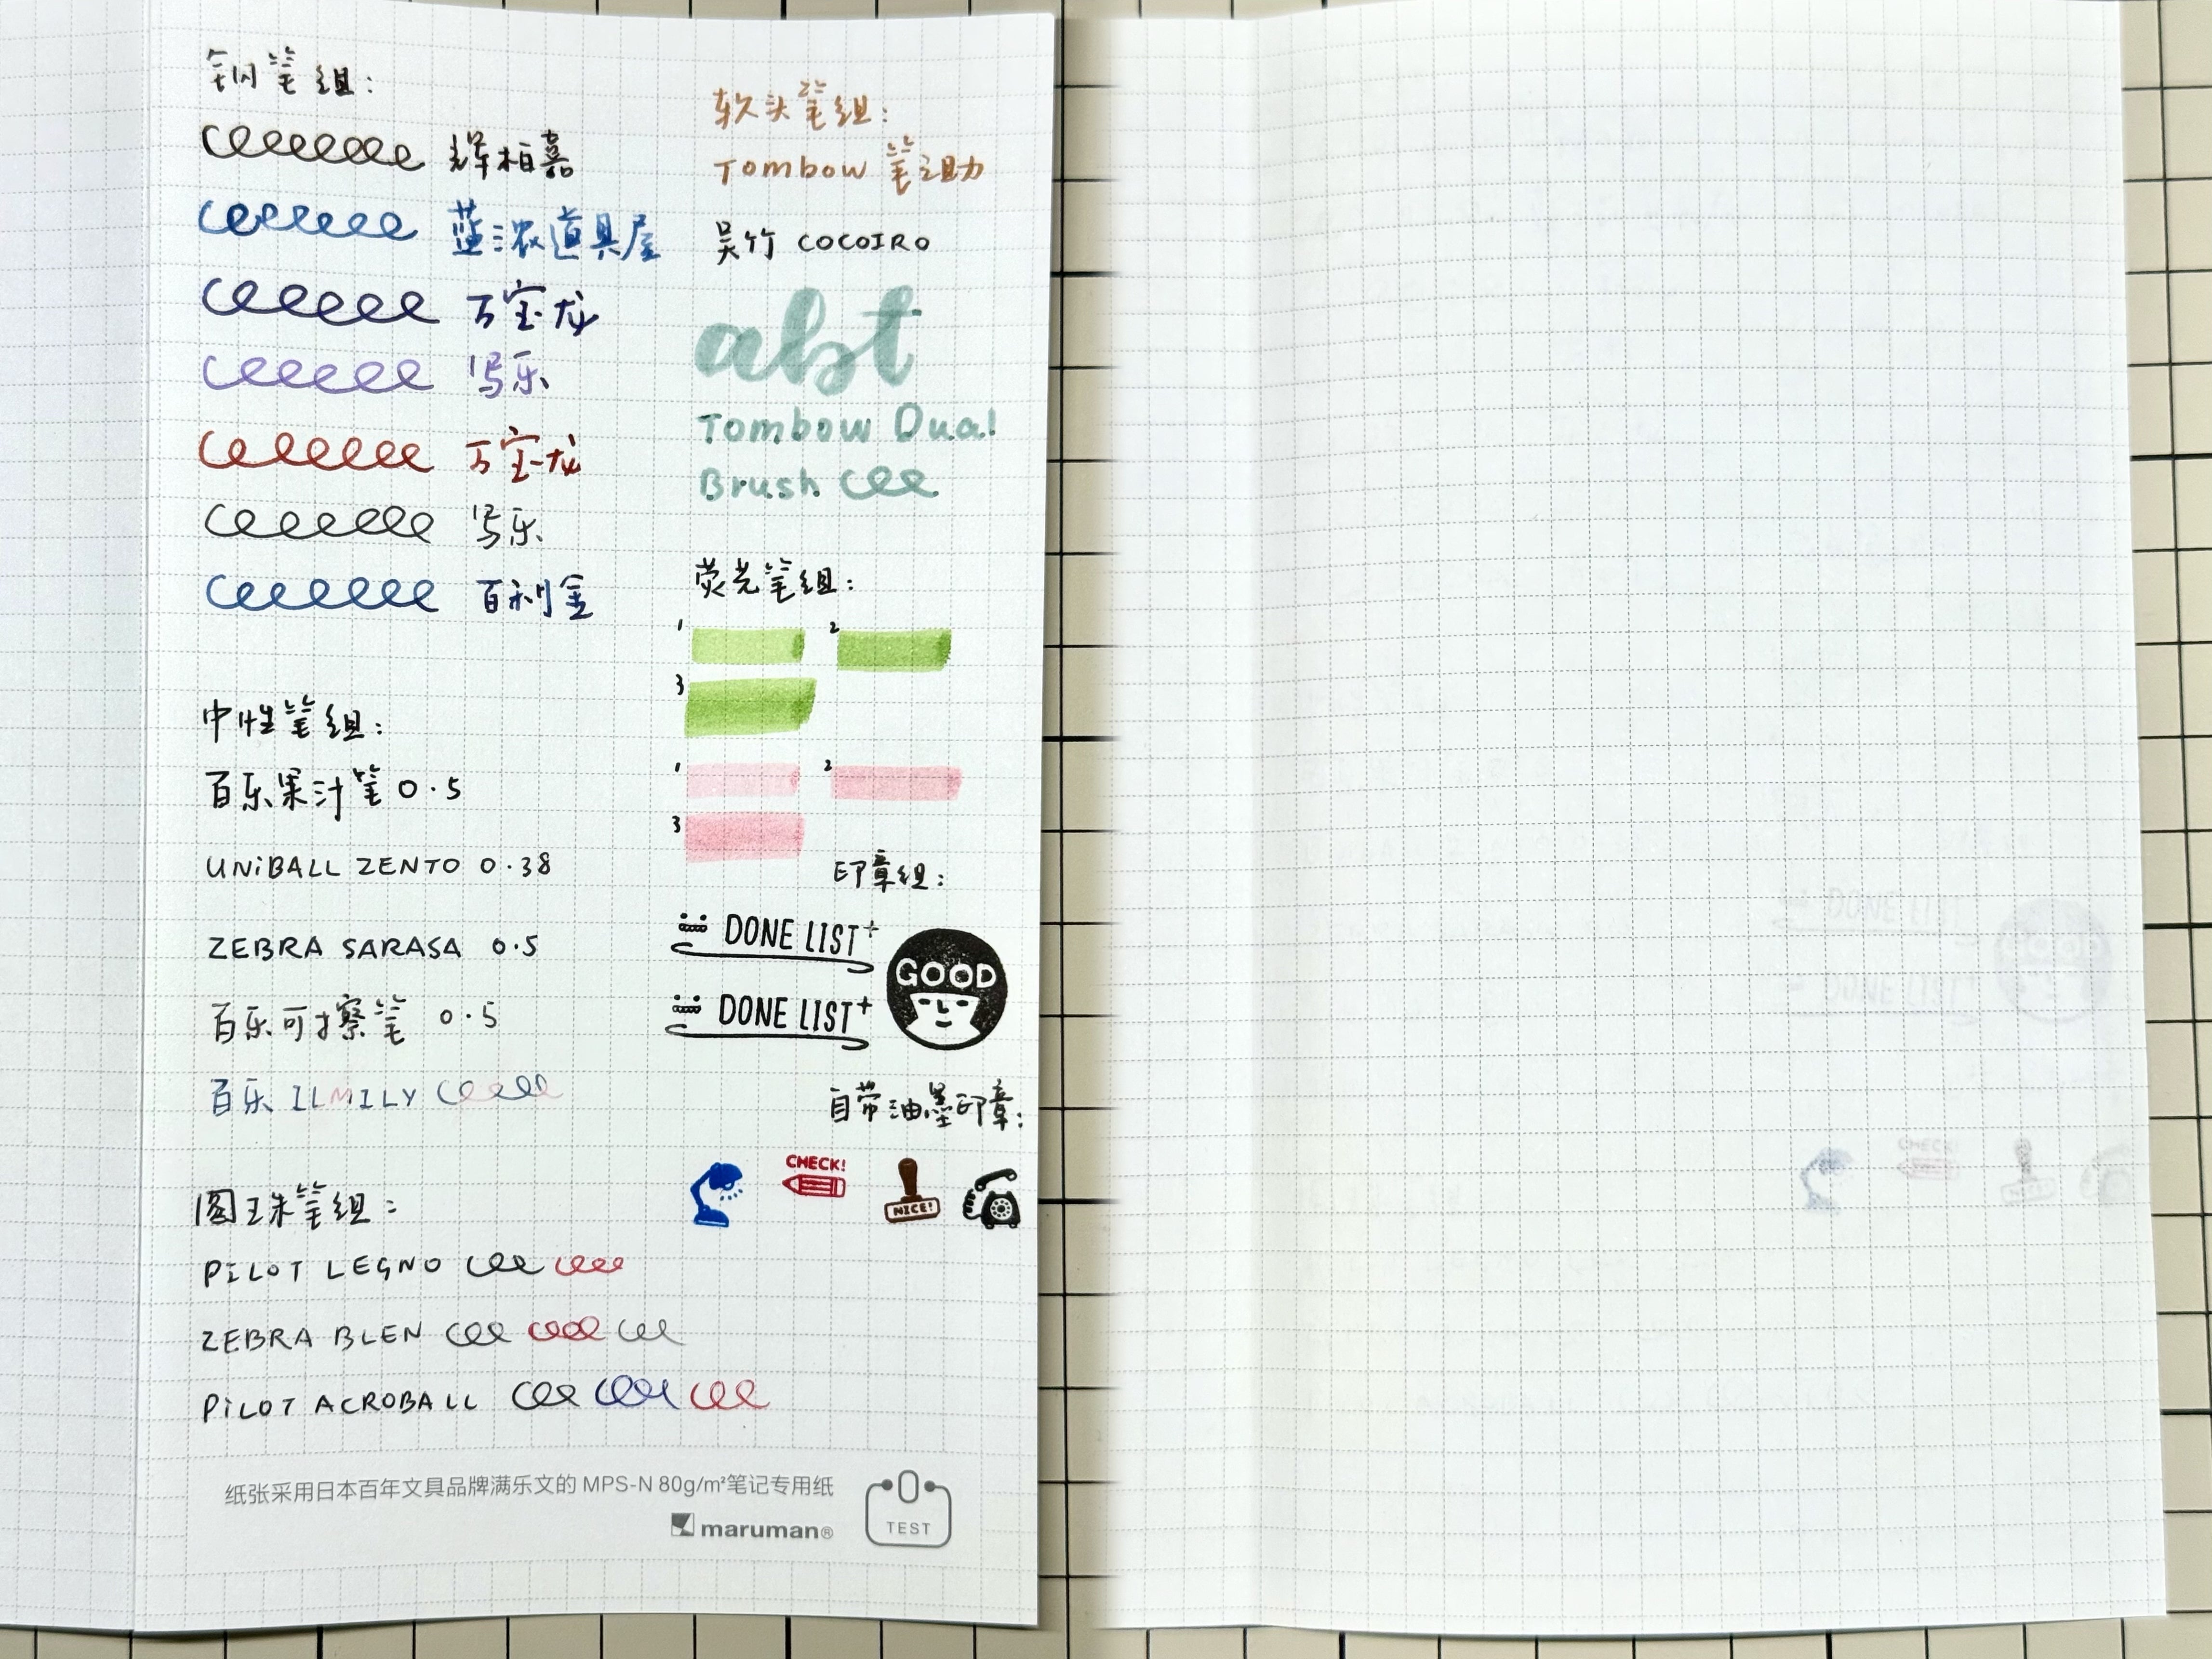 钢笔组:
辉柏嘉
蓝浓道具屋
万宝龙
写乐
万宝龙
写乐
百利金
中性笔组:
百乐果汁笔 0.5
UNiBALL ZENTO 0.38
ZEBRA SARASA 0.5
百乐可擦笔 0.5
百乐 ILMILY
圆珠笔组:
PILOT LEGNO
ZEBRA BLEN
PILOT ACROBALL
软头笔组:
Tombow 笔之助
吴竹 COCOIRO
abt
Tombow Dual
Brush
荧光笔组:
1 2
3
1 2
3
印章组:
DONE LIST+
GOOD
DONE LIST+
自带油墨印章:
CHECK!
NICE!
纸张采用日本百年文具品牌满乐文的 MPS-N 80g/m²笔记专用纸
maruman®
TEST